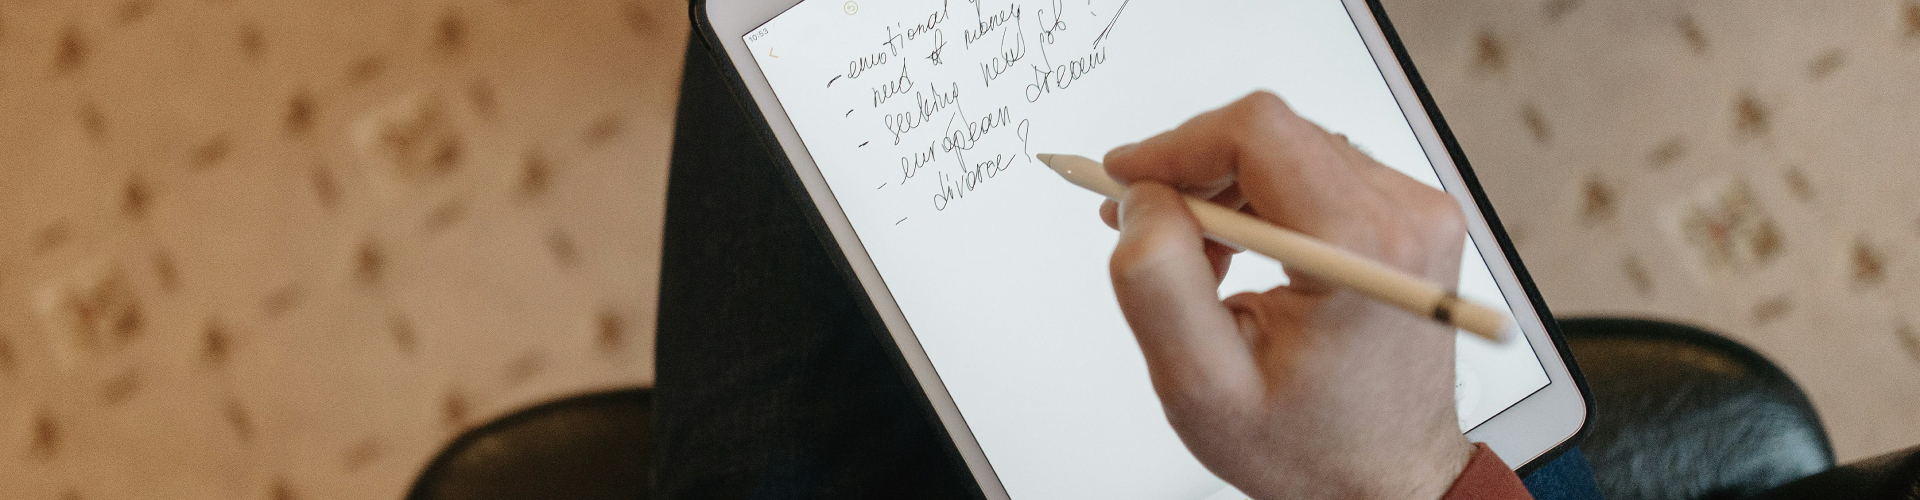 10:53
- emotional
- need of money
- seeking new job?
- european dream
- divorce?